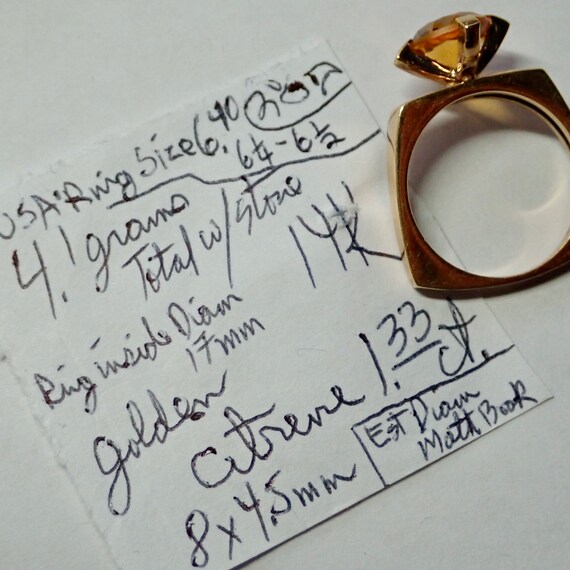 USA Ring Size 6.40
6¼ - 6½
4.1 grams
Total w/ Stone
14K
Ring inside Diam
17mm
golden
citrene 1.33 ct.
8 x 4.5mm
Est Diam
Math Book